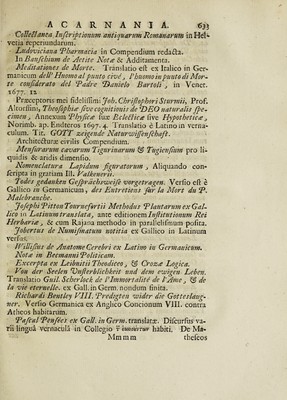 ACARNANIA. 633
Collectanea Inscriptionum antiquarum Romanarum in Hel-
vetia reperiundarum.
Ludoviciana Pharmacia in Compendium redacta.
In Banschium de Aetite Notæ & Additamenta.
Meditationes de Morte. Translatio est ex Italico in Ger-
manicum dell' Huomo al punto cioé, l'huomo in punto di Mor-
te considerato del Padre Daniele Bartoli, in Venet.
1677. 12
Præceptoris mei fidelissimi Joh. Christophori Sturmii, Prof.
Aloussini, Theosophiæ sive cognitionis de DEO naturalis spe-
cimen, Annexum Physicæ suæ Eclecticæ sive Hypotheticæ,
Norimb. ap. Endteros 1697. 4. Translatio è Latino in verna-
culum. Tit. GOTT zeigende Naturwissenschaft.
Architecturæ civilis Compendium.
Mensurarum cavarum Tigurinarum & Tugiensium pro li-
quidis & aridis dimensio.
Nomenclatura Lapidum figuratorum, Aliquando con-
scripta in gratiam Ill. Valkenerii.
Todes gedancken Gesprächsweise vorgetragen. Versio est è
Gallico in Germanicum, des Entretiens sur la Mort du P.
Malebranche.
Josephi Pitton Tournefortii Methodus Plantarum ex Gal-
lico in Latinum translata, ante editionem Institutionum Rei
Herbariæ, & cum Rajana methodo in parallelismum posita.
Jobertus de Numismatum notitia ex Gallico in Latinum
versus.
Willisius de Anatome Cerebri ex Latino in Germanicum.
Nota in Becmanni Politicam.
Excerpta ex Leibnitii Theodicea, & Crozæ Logica.
Von der Seelen Unsterblichkeit und dem ewigen Leben.
Translatio Guil. Scherlock de l'Immortalité de l'Ame, & de
la vie éternelle. ex Gall. in Germ. nondum finita.
Richardi Bentley VIII. Predigten wider die Gottesläug-
ner. Versio Germanica ex Anglico Concionum VIII. contra
Atheos habitarum.
Pascal Pensées ex Gall. in Germ. translatæ. Discursus va-
rii linguâ vernaculâ in Collegio habiti. De Ma-
Mmmm theseos